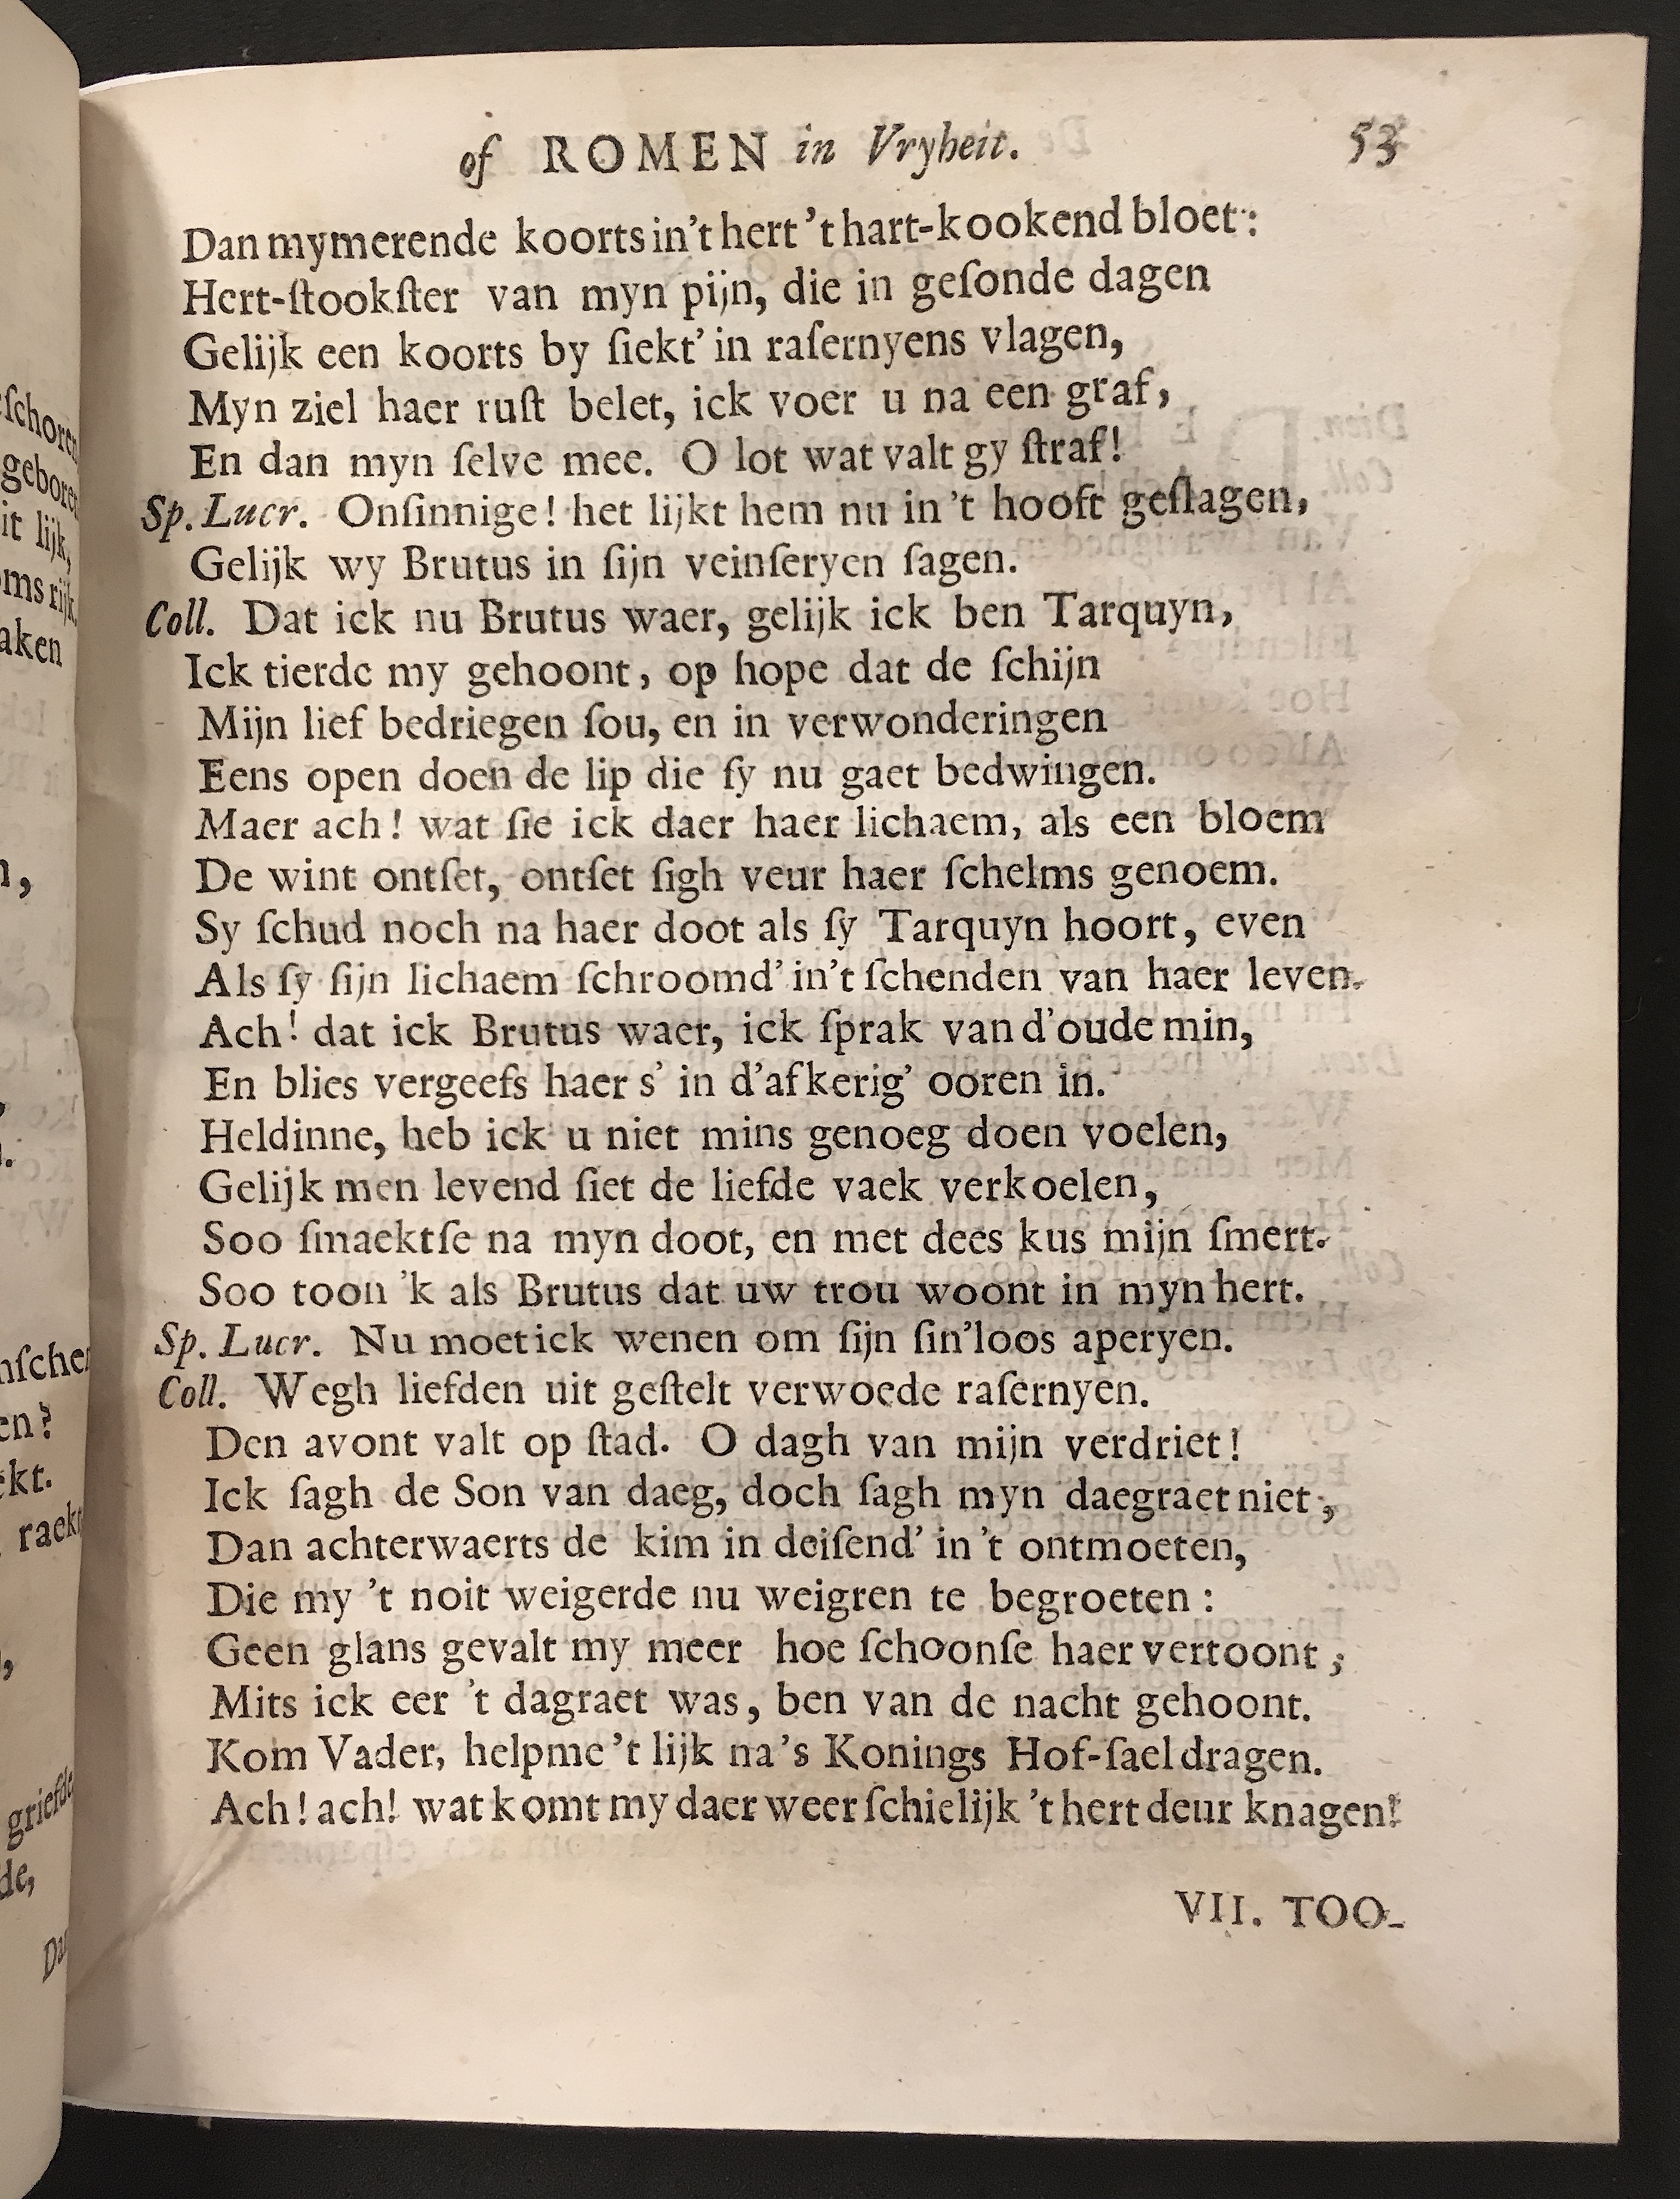 of ROMEN in Vryheit. 53
Dan mymerende koorts in't hert 't hart-kookend bloet:
Hert-ſtookſter van myn pijn, die in geſonde dagen
Gelijk een koorts by ſiekt' in raſernyens vlagen,
Myn ziel haer ruſt belet, ick voer u na een graf,
En dan myn ſelve mee. O lot wat valt gy ſtraf!
Sp. Lucr. Onſinnige! het lijkt hem nu in 't hooft geſlagen,
Gelijk wy Brutus in ſijn veinſeryen ſagen.
Coll. Dat ick nu Brutus waer, gelijk ick ben Tarquyn,
Ick tierde my gehoont, op hope dat de ſchijn
Mijn lief bedriegen ſou, en in verwonderingen
Eens open doen de lip die ſy nu gaet bedwingen.
Maer ach! wat ſie ick daer haer lichaem, als een bloem
De wint ontſet, ontſet ſigh veur haer ſchelms genoem.
Sy ſchud noch na haer doot als ſy Tarquyn hoort, even
Als ſy ſijn lichaem ſchroomd' in't ſchenden van haer leven.
Ach! dat ick Brutus waer, ick ſprak van d'oude min,
En blies vergeefs haer s' in d'afkerig' ooren in.
Heldinne, heb ick u niet mins genoeg doen voelen,
Gelijk men levend ſiet de liefde vaek verkoelen,
Soo ſmaektſe na myn doot, en met dees kus mijn ſmert.
Soo toon 'k als Brutus dat uw trou woont in myn hert.
Sp. Lucr. Nu moet ick wenen om ſijn ſin'loos aperyen.
Coll. Wegh liefden uit geſtelt verwoede raſernyen.
Den avont valt op ſtad. O dagh van mijn verdriet!
Ick ſagh de Son van daeg, doch ſagh myn daegraet niet,
Dan achterwaerts de kim in deiſend' in 't ontmoeten,
Die my 't noit weigerde nu weigren te begroeten:
Geen glans gevalt my meer hoe ſchoonſe haer vertoont;
Mits ick eer 't dagraet was, ben van de nacht gehoont.
Kom Vader, help me 't lijk na 's Konings Hof-ſael dragen.
Ach! ach! wat komt my daer weer ſchielijk 't hert deur knagen!
VII. TOO-